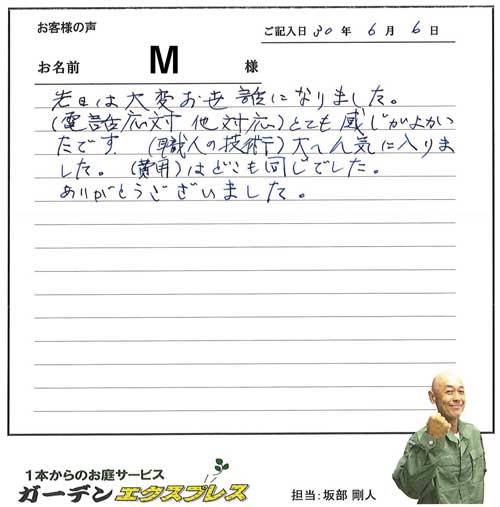 お客様の声
ご記入日 30 年 6 月 6 日
お名前 M 様
先日は大変お世話になりました。
(電話応対 他対応)とても感じがよかっ
たです. (職人の技術)大へん気に入りま
した。(費用)はどこも同じでした。
ありがとうございました。
1本からのお庭サービス
ガーデンエクスプレス
担当:坂部 剛人